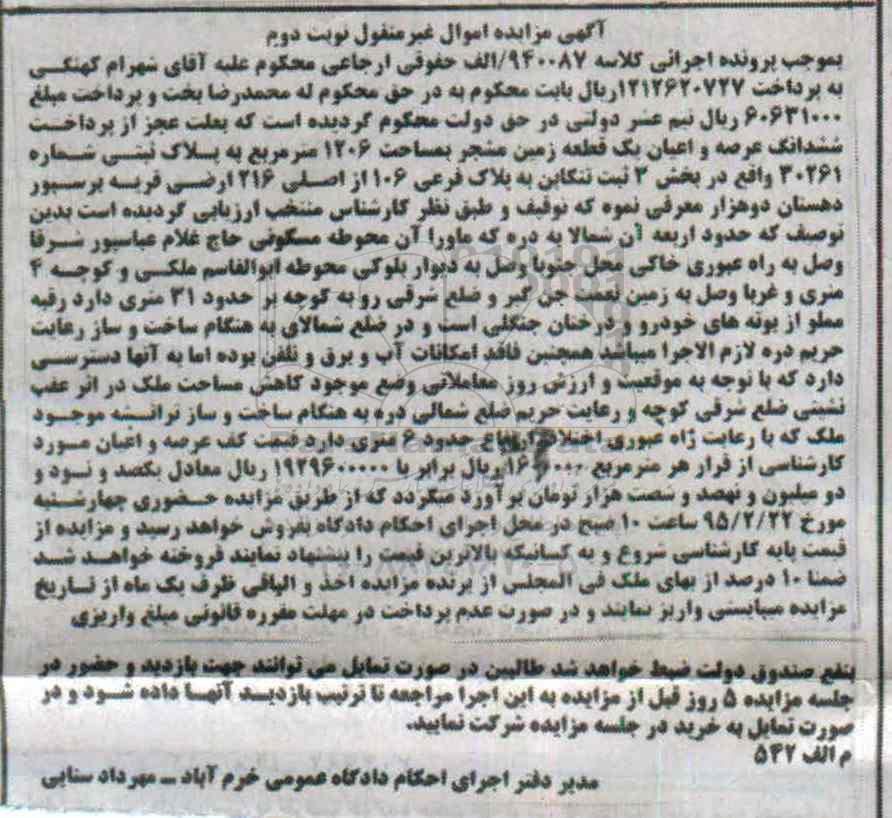 آگهی مزایده اموال غیرمنقول نوبت دوم
بموجب پرونده اجرائی کلاسه ۹۴۰۰۸۷/الف حقوقی ارجاعی محکوم علیه آقای شهرام کهنکی
به پرداخت ۱۲۱۲۶۲۰۷۲۷ریال بابت محکوم به در حق محکوم له محمدرضا بخت و پرداخت مبلغ
۶۰۶۳۱۰۰۰ ریال نیم عشر دولتی در حق دولت محکوم گردیده است که بعلت عجز از پرداخت
ششدانگ عرصه و اعیان یک قطعه زمین مشجر بمساحت ۱۲۰۶ مترمربع به پلاک ثبتی شماره
۳۰۲۶۱ واقع در بخش ۳ ثبت تنکابن به پلاک فرعی ۱۰۶ از اصلی ۲۱۶ اراضی قریه پرسپور
دهستان دوهزار معرفی نموه که توقیف و طبق نظر کارشناس منتخب ارزیابی گردیده است بدین
توصیف که حدود اربعه آن شمالا به دره که ماورا آن محوطه مسکونی حاج غلام عباسپور شرقا
وصل به راه عبوری خاکی محل جنوبا وصل به دیوار بلوکی محوطه ابوالقاسم ملکی و کوچه ۴
متری و غربا وصل به زمین نعمت جن گیر و ضلع شرقی رو به کوچه بر حدود ۳۱ متری دارد رقبه
مملو از بوته های خودرو و درختان جنگلی است و در ضلع شمالای به هنگام ساخت و ساز رعایت
حریم دره لازم الاجرا میباشد همچنین فاقد امکانات آب و برق و تلفن بوده اما به آنها دسترسی
دارد که با توجه به موقعیت و ارزش روز معاملاتی وضع موجود کاهش مساحت ملک در اثر عقب
نشینی ضلع شرقی کوچه و رعایت حریم ضلع شمالی دره به هنگام ساخت و ساز ترانشه موجود
ملک که با رعایت راه عبوری اختلاف ارتفاع حدود ۶ متری دارد قیمت کف عرصه و اعیان مورد
کارشناسی از قرار هر مترمربع ریال برابر با ۱۹۲۹۶۰۰۰۰۰ ریال معادل یکصد و نود و
دو میلیون و نهصد و شصت هزار تومان برآورد میگردد که از طریق مزایده حضوری چهارشنبه
مورخ ۹۵/۲/۲۲ ساعت ۱۰ صبح در محل اجرای احکام دادگاه بفروش خواهد رسید و مزایده از
قیمت پایه کارشناسی شروع و به کسانیکه بالاترین قیمت را پیشنهاد نمایند فروخته خواهد شد
ضمنا ۱۰ درصد از بهای ملک فی المجلس از برنده مزایده اخذ و الباقی ظرف یک ماه از تاریخ
مزایده میبایستی واریز نمایند و در صورت عدم پرداخت در مهلت مقرره قانونی مبلغ واریزی
بنفع صندوق دولت ضبط خواهد شد طالبین در صورت تمایل می توانند جهت بازدید و حضور در
جلسه مزایده ۵ روز قبل از مزایده به این اجرا مراجعه تا ترتیب بازدید آنها داده شود و در
صورت تمایل به خرید در جلسه مزایده شرکت نمایید.
م الف ۵۴۲
مدیر دفتر اجرای احکام دادگاه عمومی خرم آباد ـ مهرداد سنایی